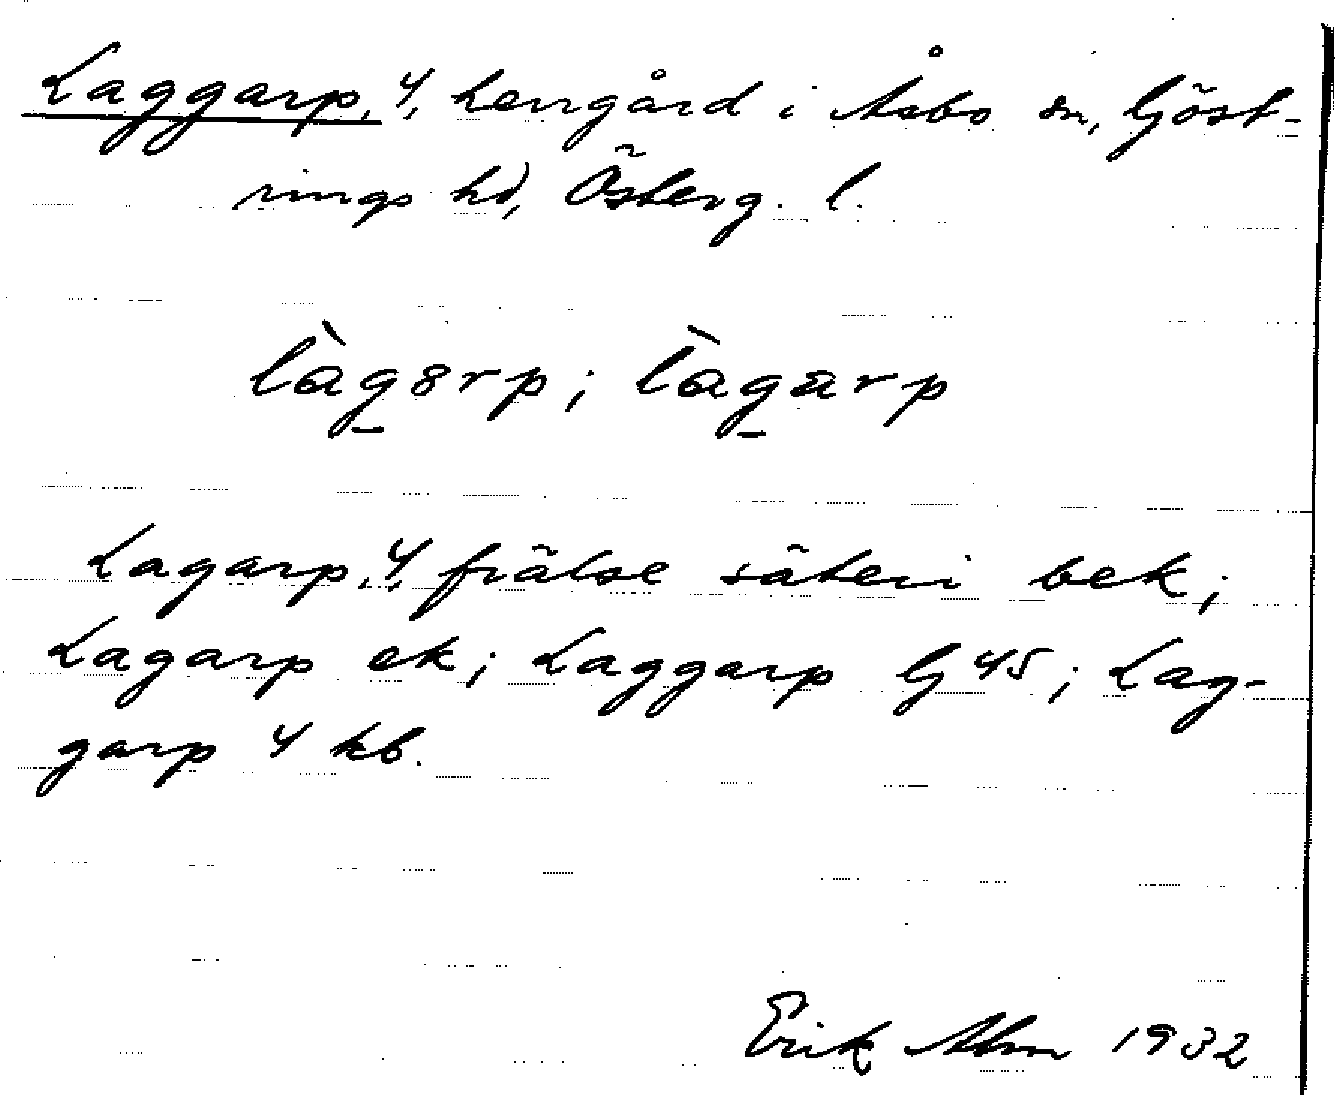 Laggarp, 4, herrgård i Åsbo sn, Göst-
rings hd, Österg. l.
làgarp; làgarp
Lagarp, 4, frälse säteri bek;
Lagarp ek; Laggarp Gj 45; Lag-
garp 4 kb.
Erik Alm 1932